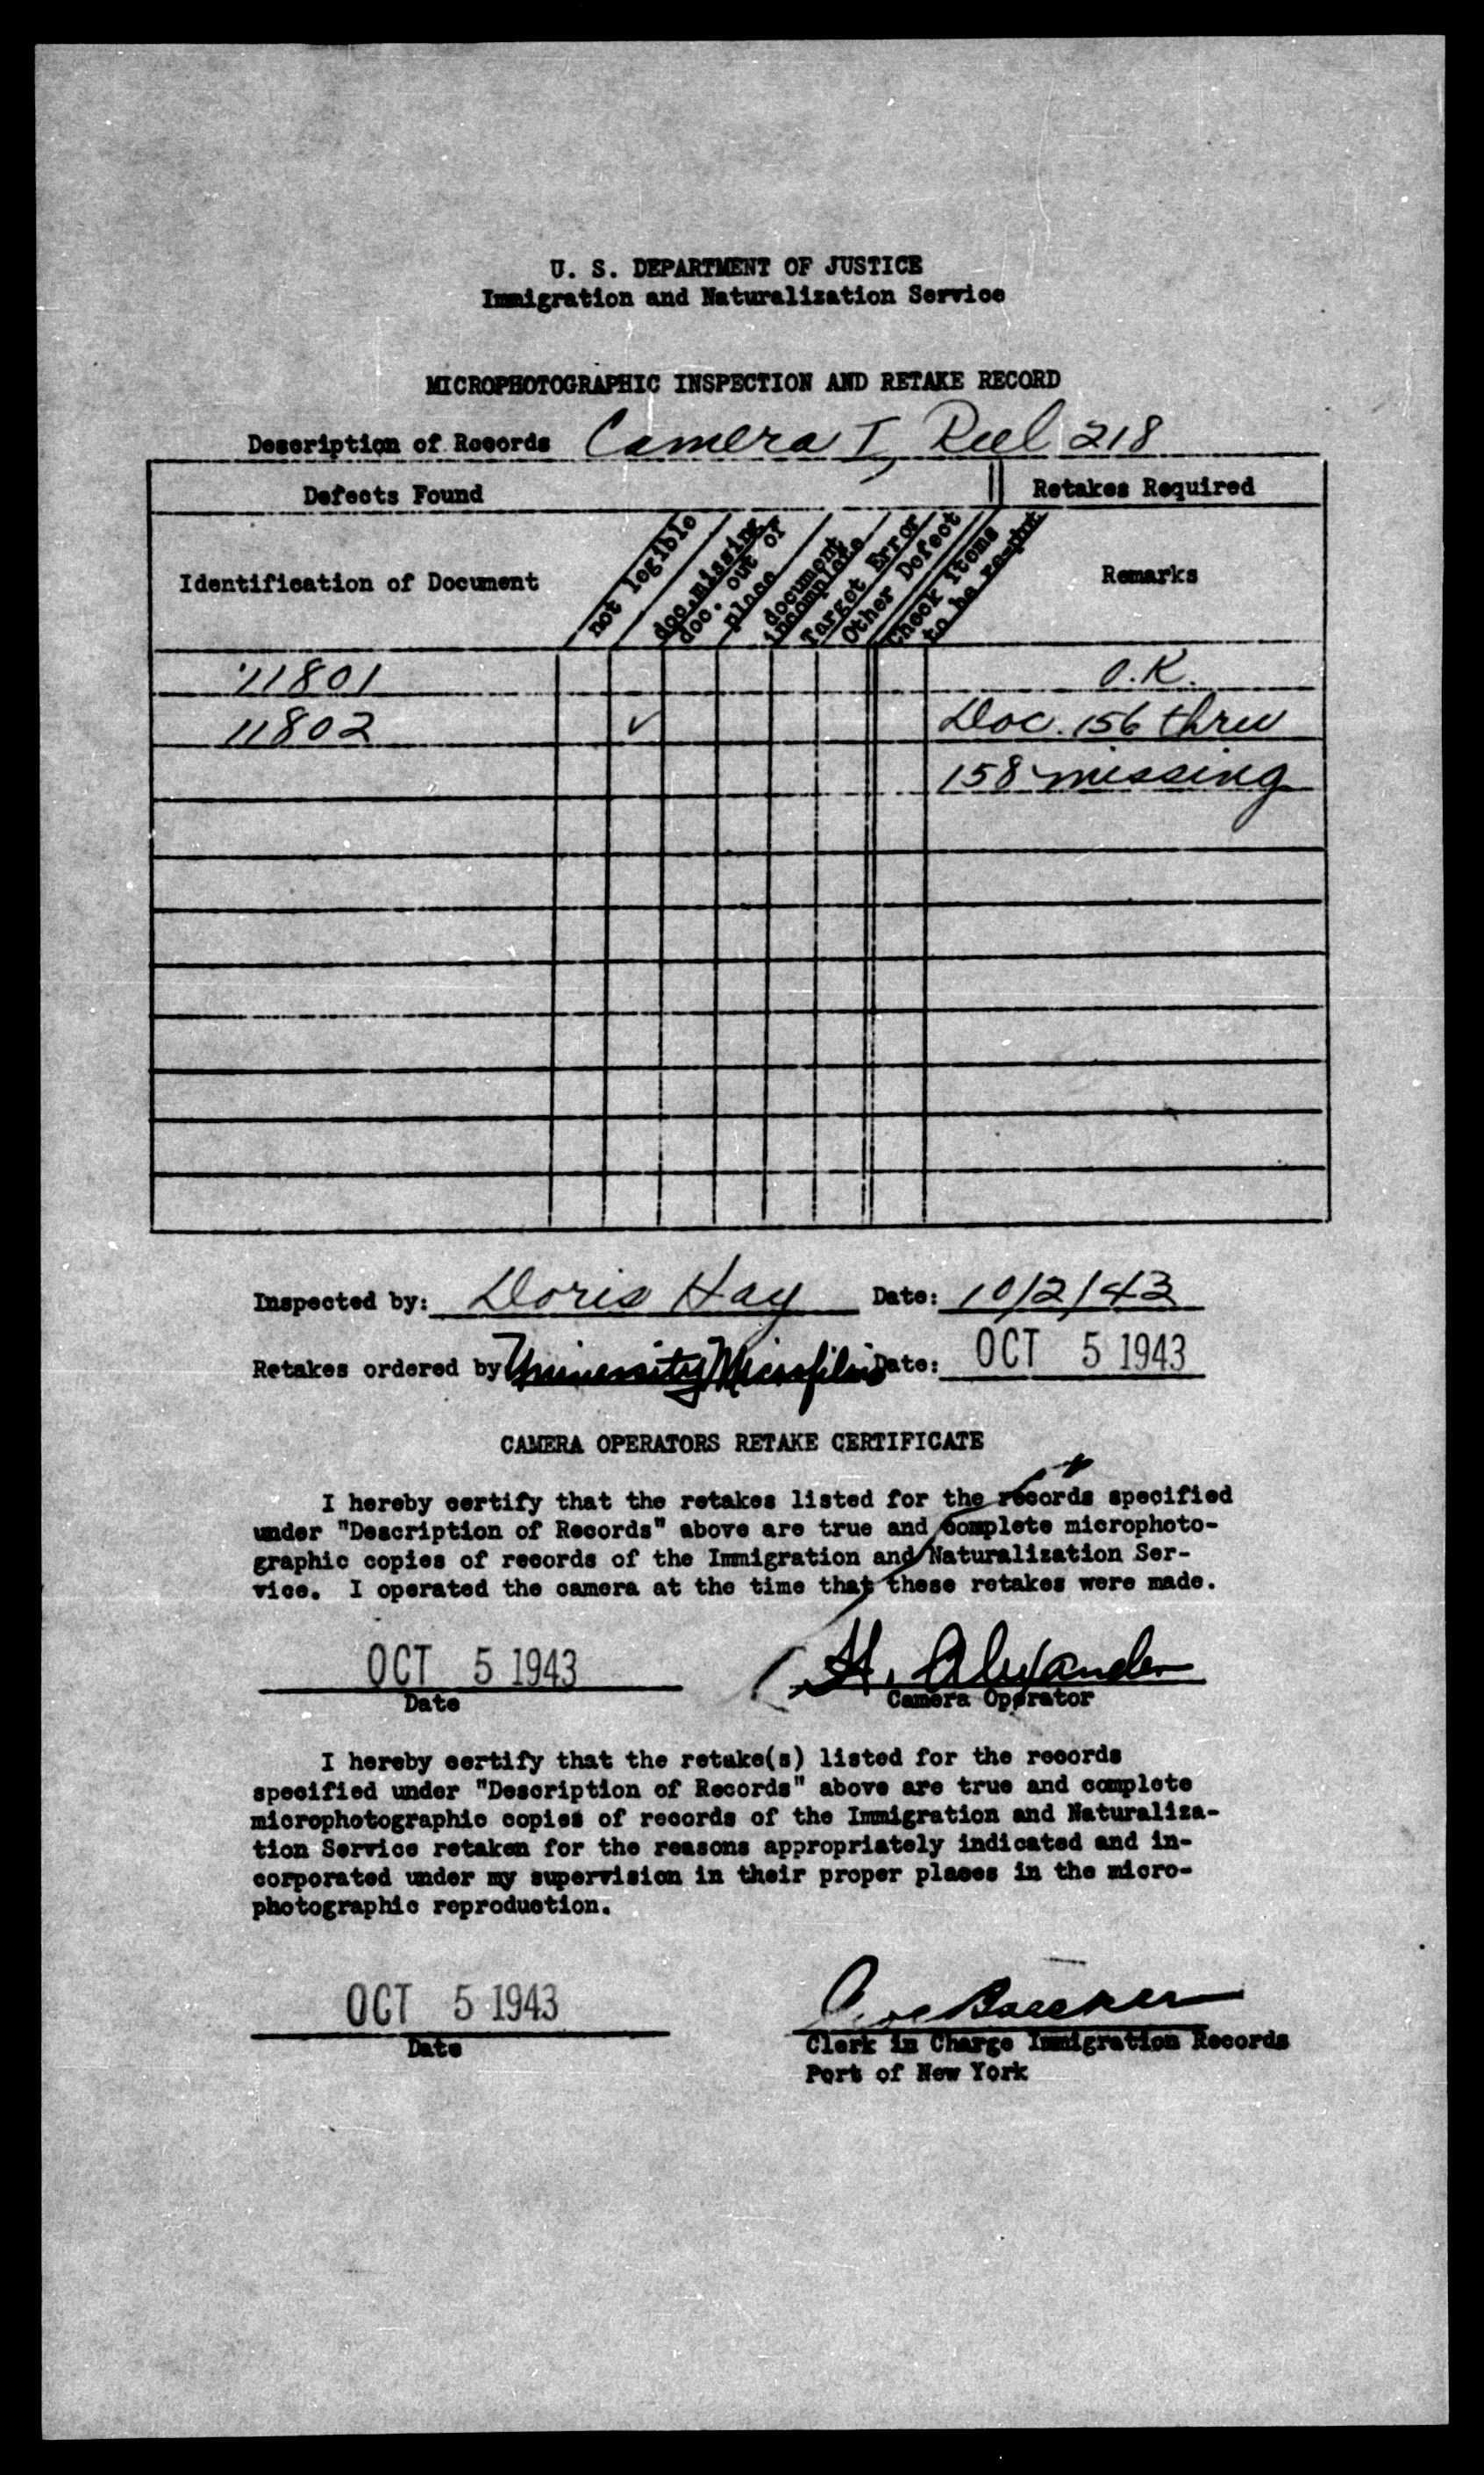 U. S. DEPARTMENT OF JUSTICE
Immigration and Naturalization Service
MICROPHOTOGRAPHIC INSPECTION AND RETAKE RECORD
Description of Records Camera I, Reel 218
Defects Found Retakes Required
Identification of Document not legible doc. missing doc. out of place document incomplete Target Error Other Defect Check items to be re-pht Remarks
11801 O.K.
11802 ✓ Doc. 156 thru
158 missing
Inspected by: Doris Hay Date: 10/2/43
Retakes ordered by University Microfilms Date: OCT 5 1943
CAMERA OPERATORS RETAKE CERTIFICATE
I hereby certify that the retakes listed for the records specified
under "Description of Records" above are true and complete microphoto-
graphic copies of records of the Immigration and Naturalization Ser-
vice. I operated the camera at the time that these retakes were made.
OCT 5 1943 H. Alexander
Date Camera Operator
I hereby certify that the retake(s) listed for the records
specified under "Description of Records" above are true and complete
microphotographic copies of records of the Immigration and Naturaliza-
tion Service retaken for the reasons appropriately indicated and in-
corporated under my supervision in their proper places in the micro-
photographic reproduction.
OCT 5 1943
Date Clerk in Charge Immigration Records
Port of New York